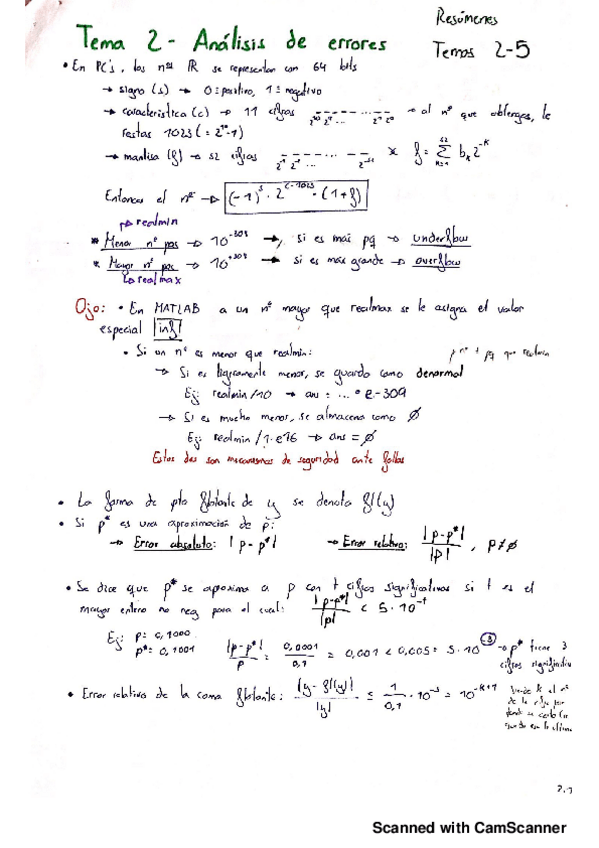 Resúmenes
Tema 2 - Análisis de errores
Temas 2-5
• En PC's, los nos IR se representan con 64 bits
→ signo (s) → 0 ≡ positivo, 1 ≡ negativo
→ característica (c) → 11 cifras 2^10 2^9 ... 2^1 2^0 → al nº que obtengas, le
restas 1023 (= 2^10-1)
→ mantisa (f) → 52 cifras 2^-1 2^-2 ... 2^-52 * f = Σ b_k 2^-k
k=1 52
Entonces el nº → (-1)^s · 2^(c-1023) · (1+f)
realmin
* Menor nº pos → 10^-308 → si es más pq → underflow
* Mayor nº pos → 10^+308 → si es más grande → overflow
realmax
Ojo: • En MATLAB a un nº mayor que realmax se le asigna el valor
especial inf
• Si un nº es menor que realmin:
nº + pq que realmin
→ Si es ligeramente menor, se guarda como denormal
Ej: realmin/10 → ans = ... e-309
→ Si es mucho menor, se almacena como Ø
Ej: realmin/1.e16 → ans = Ø
Estos dos son mecanismos de seguridad ante fallos
• La forma de pto flotante de y se denota fl(y)
• Si p* es una aproximación de p:
→ Error absoluto: |p-p*| → Error relativo: |p-p*| / |p| , p≠Ø
• Se dice que p* se aproxima a p con t cifras significativas si t es el
mayor entero no neg para el cual: |p-p*| / |p| < 5·10^-t
Ej: p = 0,1000
p* = 0,1001
|p-p*| / p = 0,0001 / 0,1 = 0,001 < 0,005 = 5·10^-3 → p* tiene 3
cifras significativ
• Error relativo de la coma flotante: |y-fl(y)| / |y| ≤ 1 / 0,1 · 10^-k = 10^-k+1
k el nº
de la
2.1
Scanned with CamScanner